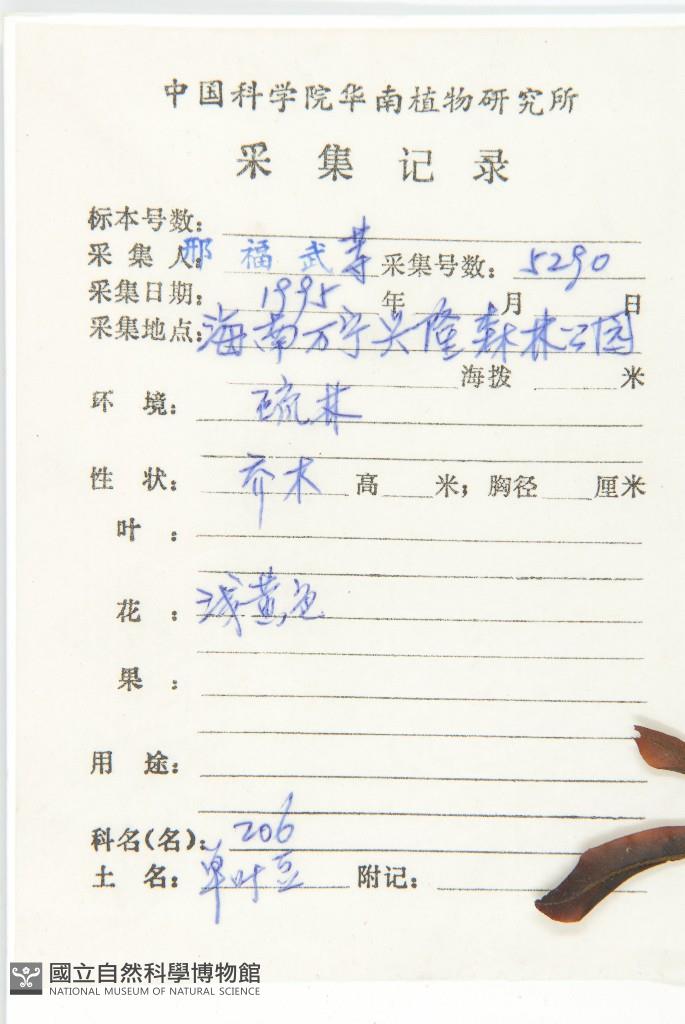 中国科学院华南植物研究所
采集记录
标本号数:
采集人: 邢福武等 采集号数: 5290
采集日期: 1995 年 月 日
采集地点: 海南万宁兴隆森林公园
海拨 米
环境: 硫林
性状: 乔木 高 米; 胸径 厘米
叶:
花: 浅黄色
果:
用途:
科名(名): 206
土名: 单叶豆 附记:
國立自然科學博物館
NATIONAL MUSEUM OF NATURAL SCIENCE